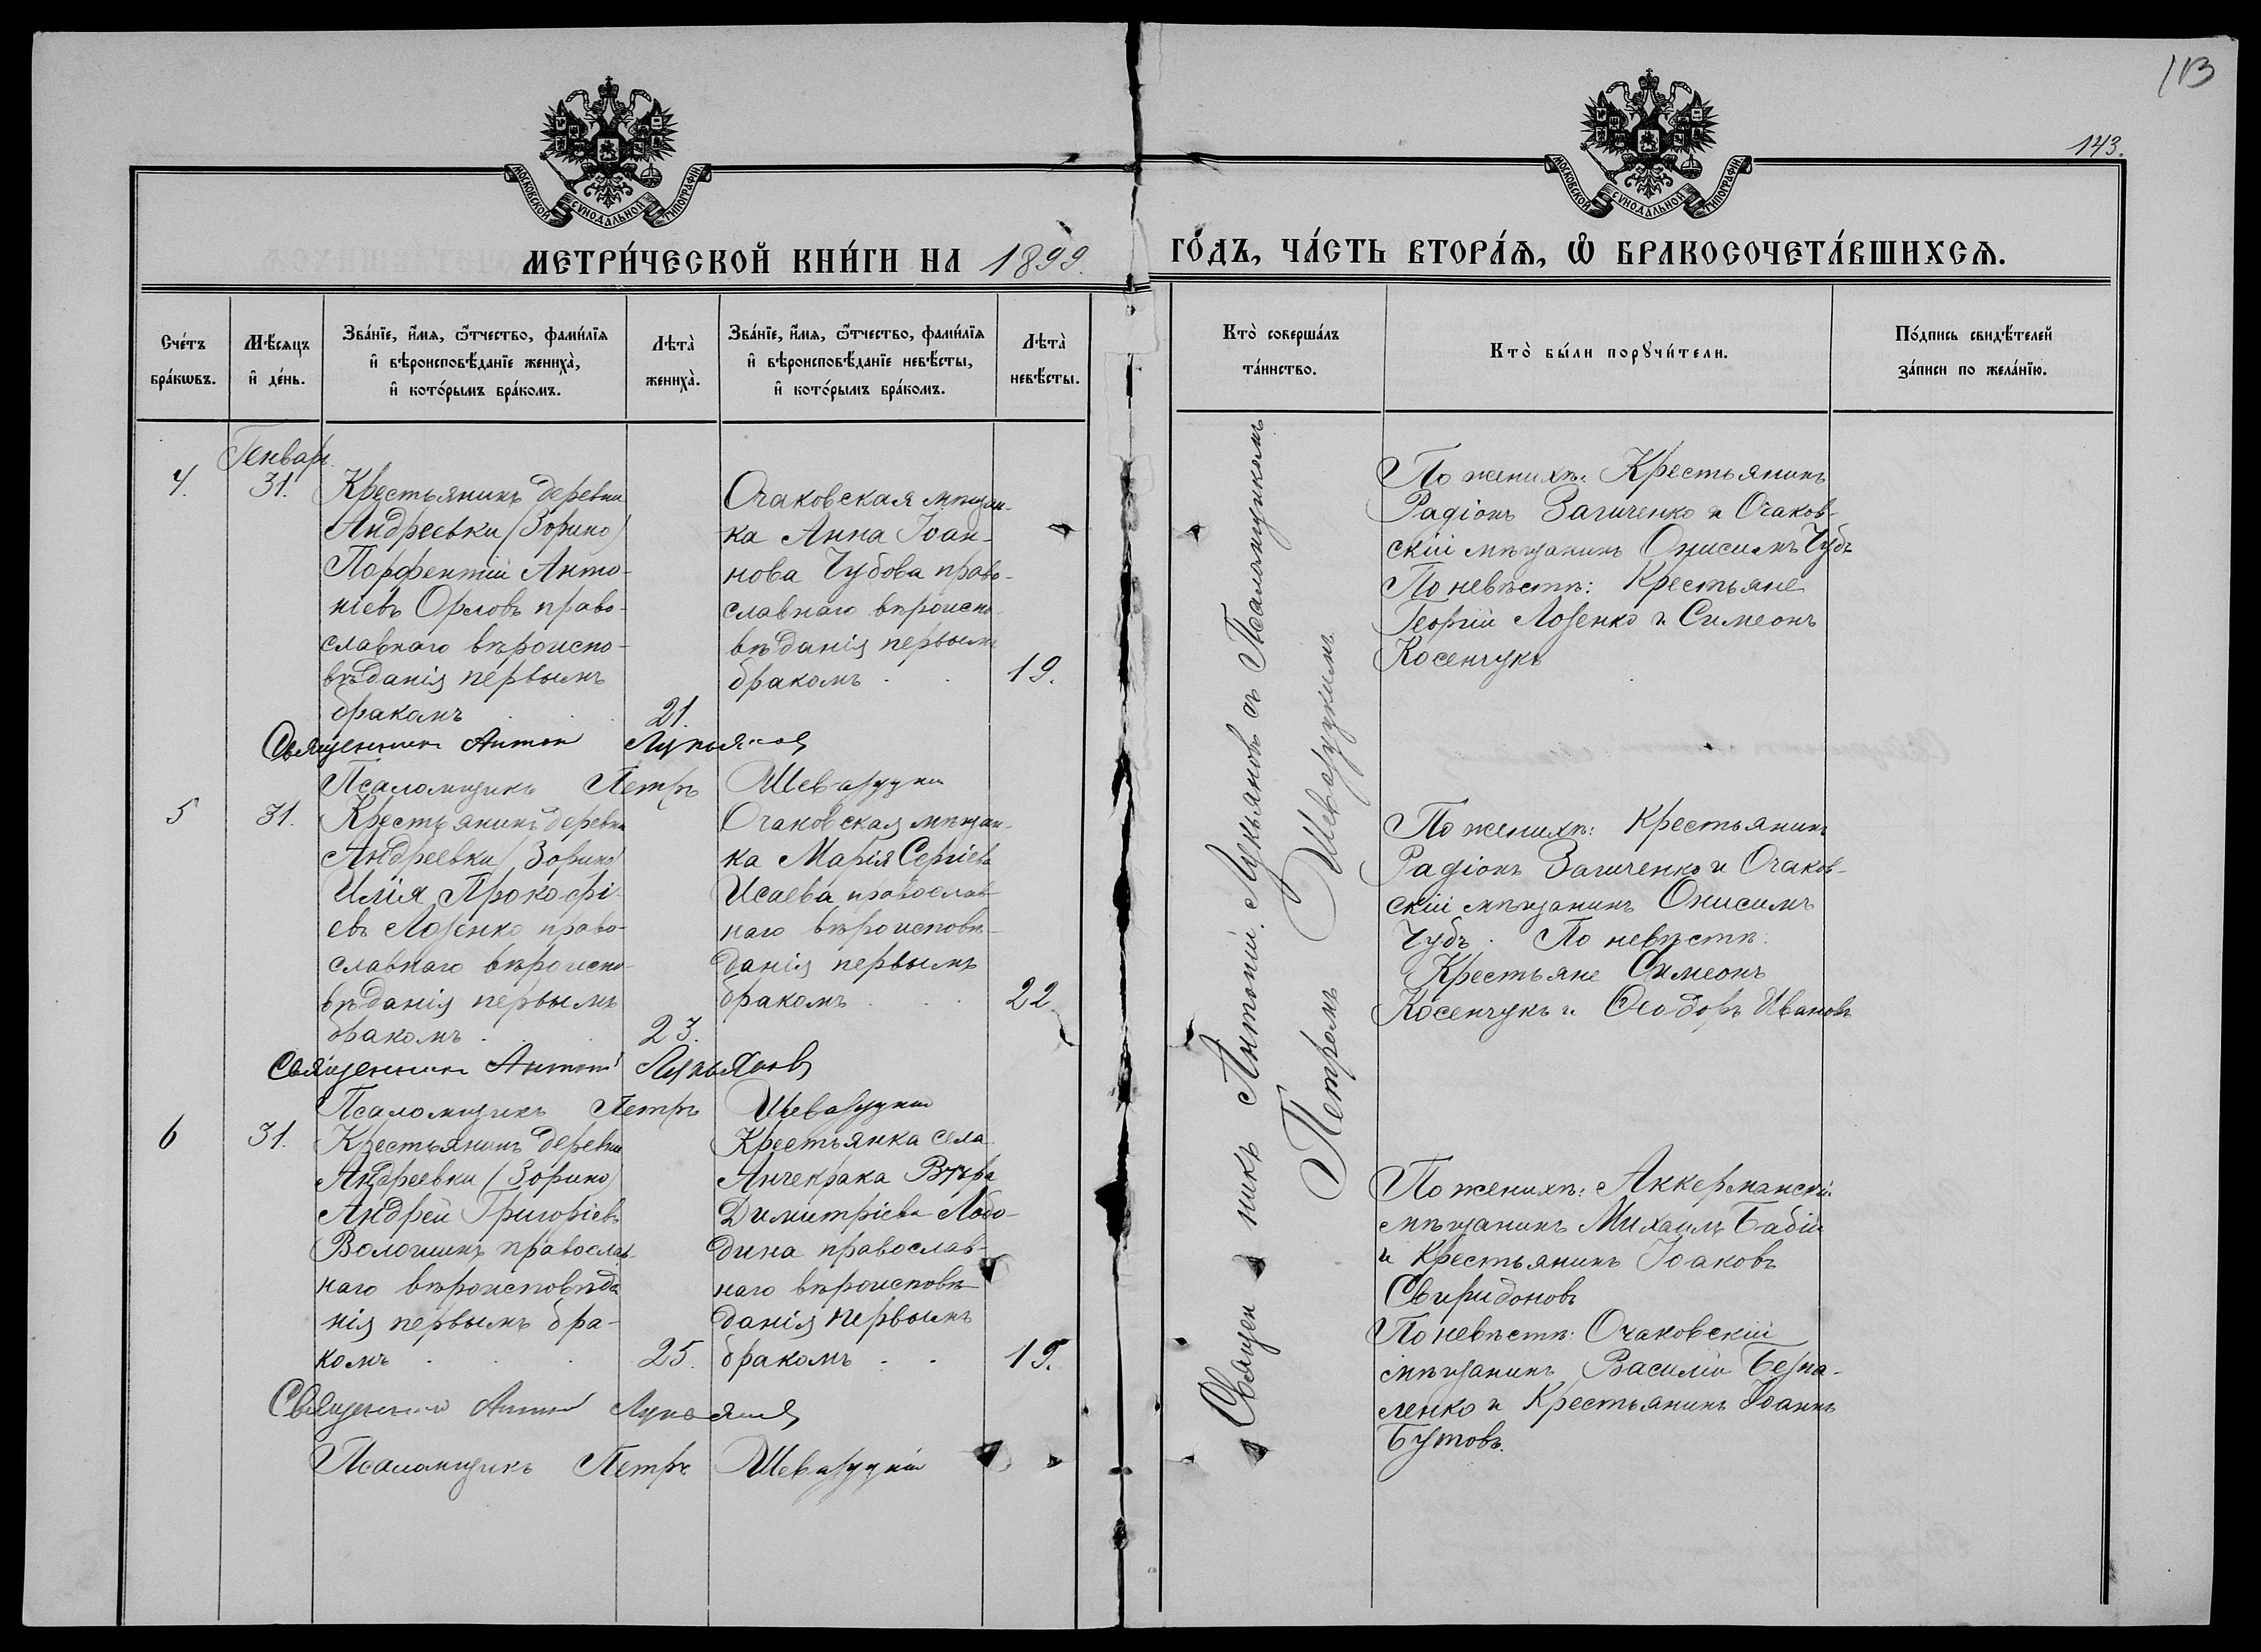 113
143.
МОСКОВСКОЙ СѴНОДАЛЬНОЙ ТИПОГРАФІИ
МОСКОВСКОЙ СѴНОДАЛЬНОЙ ТИПОГРАФІИ
МЕТРИ́ЧЕСКОЙ КНИ́ГИ НА 1899.
ГО́ДЪ, ЧА́СТЬ ВТОРА́Ѧ, Ѽ БРАКОСОЧЕТА́ВШИХСѦ.
Сче́тъ
бра́кѡвъ.
Мѣ́сѧцъ
и҆ де́нь.
Зва́нїе, и҆́мѧ, ѻ҆́тчество, фами́лїѧ
и҆ вѣроисповѣ́данїе жениха̀,
и҆ кото́рымъ бра́комъ.
Лѣта̀
жениха̀.
Зва́нїе, и҆́мѧ, ѻ҆́тчество, фами́лїѧ
и҆ вѣроисповѣ́данїе невѣ́сты,
и҆ кото́рымъ бра́комъ.
Лѣта̀
невѣ́сты.
Кто̀ соверша́лъ
та́инство.
Кто̀ бы́ли порꙋчи́тели.
По́дпись свидѣ́телей
за́писи по жела́нїю.
Генвар.
4.
31.
Крестьянинъ деревни
Андреевки (Зорино)
Порфентій Анто-
ніевъ Орловъ право-
славнаго вѣроиспо-
вѣданія первымъ
бракомъ . . .
21.
Очаковская мѣщан-
ка Анна Іоан-
нова Чубова право-
славнаго вѣроиспо-
вѣданія первымъ
бракомъ . .
19.
По женихѣ: Крестьянинъ
Радіонъ Загиченко и Очаков-
скій мѣщанинъ Онисимъ Чубъ
По невѣстѣ: Крестьяне
Георгій Лозенко и Симеонъ
Косенчукъ
Священникъ Антоній Лукьяновъ
Псаломщикъ Петръ Шевазуцкій
5
31.
Крестьянинъ деревни
Андреевки (Зорино)
Илія Прокофі-
евъ Лозенко право-
славнаго вѣроиспо-
вѣданія первымъ
бракомъ . . .
23.
Очаковская мѣщан-
ка Марія Сергіева
Исаева православ-
наго вѣроисповѣ-
данія первымъ
бракомъ . .
22
По женихѣ: Крестьянинъ
Радіонъ Загиченко и Очаков-
скій мѣщанинъ Онисимъ
Чубъ. По невѣстѣ:
Крестьяне Симеонъ
Косенчукъ и Ѳеодоръ Ивановъ
Священникъ Антоній Лукьяновъ
Псаломщикъ Петръ Шевазуцкій
6
31.
Крестьянинъ деревни
Андреевки (Зорино)
Андрей Григоріевъ
Волошинъ православ-
наго вѣроисповѣда
нія первымъ бра-
комъ . . .
25.
Крестьянка села
Анчекрака Вѣра
Димитріева Лобо-
дина православ-
наго вѣроисповѣ-
данія первымъ
бракомъ . .
19.
По женихѣ: Аккерманскій
мѣщанинъ Михаилъ Бабій
и Крестьянинъ Іоаковъ
Свиридоновъ
По невѣстѣ: Очаковскій
мѣщанинъ Василій Безпа-
ленко и Крестьянинъ Іоаннъ
Бутовъ.
Священникъ Антоній Лукьяновъ
Псаломщикъ Петръ Шевазуцкій
Священникъ Антоній Лукьяновъ съ Псаломщикомъ
Петромъ Шевазуцкимъ